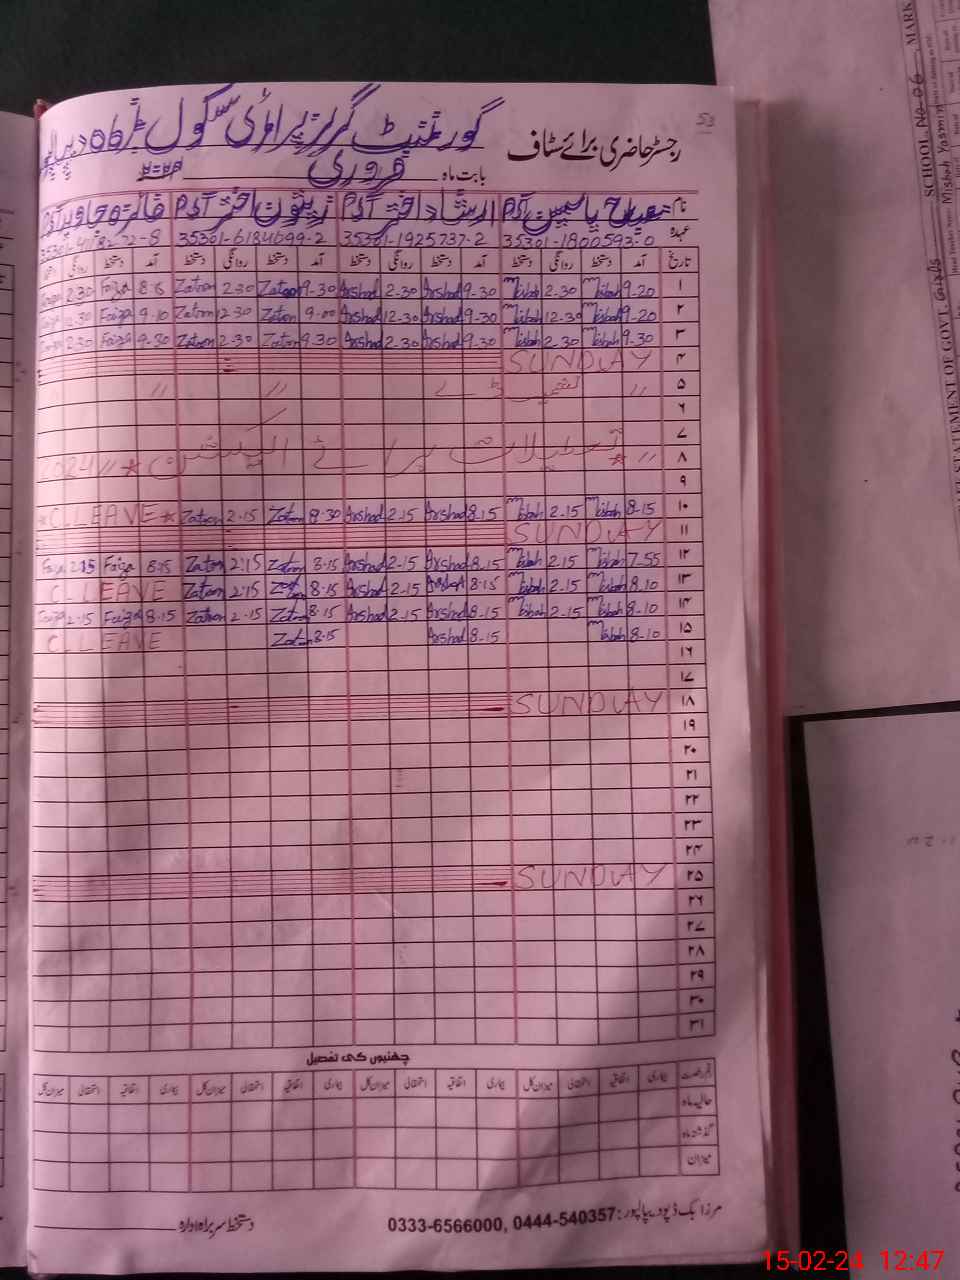 53
رجسٹر حاضری برائے سٹاف گورنمنٹ گرلز پرائمری سکول نمبر 06 دیپالپور
بابت ماہ فروری
نام مصباح یاسمین ارشاد اختر زیتون اختر
عہدہ 35301-1800593-0 35301-1925737-2 35301-6184099-2
تاریخ آمد دستخط روانگی دستخط آمد دستخط روانگی دستخط آمد دستخط روانگی دستخط آمد دستخط روانگی
۱ 9-20 Misbah 2-30 Misbah 9-30 Arshad 2-30 Arshad 9-30 Zatoon 2-30 Zatoon 8-15 Faiza 2-30
۲ 9-20 Misbah 12-30 Misbah 9-30 Arshad 12-30 Arshad 9-00 Zatoon 12-30 Zatoon 9-10 Faiza 12-30
۳ 9-30 Misbah 2-30 Misbah 9-30 Arshad 2-30 Arshad 9-30 Zatoon 2-30 Zatoon 9-30 Faiza 2-30
۴ SUNDAY
۵ // کشمیر ڈے // //
۶
۷
۸ // * تعطیلات برائے الیکشن * // 2024
۹
۱۰ 8-15 Misbah 2-15 Misbah 8-15 Arshad 2-15 Arshad 8-30 Zatoon 2-15 Zatoon * C LLEAVE *
۱۱ SUNDAY
۱۲ 7-55 Misbah 2-15 Misbah 8-15 Arshad 2-15 Arshad 8-15 Zatoon 2:15 Zatoon 8-15 Faiza 2:15 Faiza
۱۳ 8-10 Misbah 2-15 Misbah 8-15 Arshad 2-15 Arshad 8-15 Zatoon 2:15 Zatoon C LLEAVE
۱۴ 8-10 Misbah 2-15 Misbah 8-15 Arshad 2-15 Arshad 8-15 Zatoon 2-15 Zatoon 8-15 Faiza 2-15 Faiza
۱۵ 8-10 Misbah 8-15 Arshad 8-15 Zatoon C LLEAVE
۱۶
۱۷
۱۸ SUNDAY
۱۹
۲۰
۲۱
۲۲
۲۳
۲۴
۲۵ SUNDAY
۲۶
۲۷
۲۸
۲۹
۳۰
۳۱
چھٹیوں کی تفصیل
بیماری اتفاقیہ استحقاقی میزان کل بیماری اتفاقیہ استحقاقی میزان کل بیماری اتفاقیہ استحقاقی میزان کل
حالیہ ماہ
گذشتہ ماہ
میزان
مرزا بک ڈپو دیپالپور: 0333-6566000, 0444-540357
دستخط سربراہ ادارہ
SCHOOL No 06
MARK
Misbah Yasmin
STATEMENT OF GOVT. Girls
15-02-24 12:47